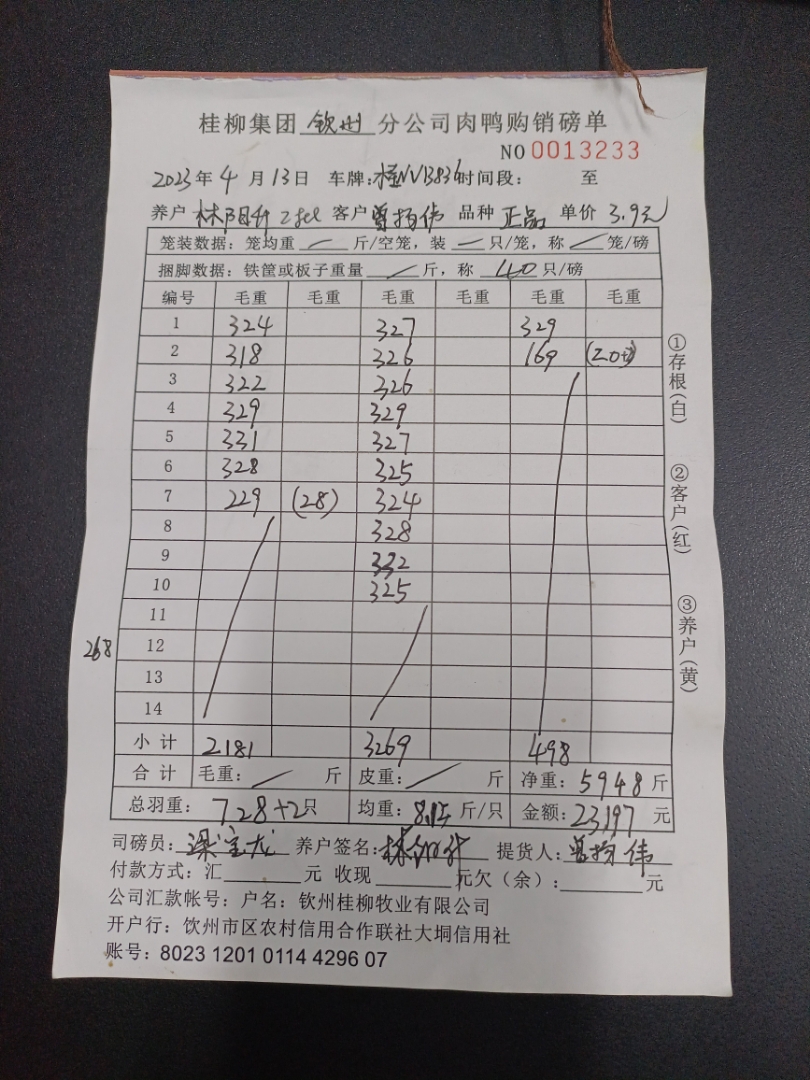 桂柳集团 钦州 分公司肉鸭购销磅单
NO 0013233
2023年4月13日 车牌:桂NV3836时间段: 至
养户 林阳升 客户 曾扬伟 品种 正品 单价 3.9元
笼装数据:笼均重 / 斤/空笼,装 / 只/笼,称 / 笼/磅
捆脚数据:铁筐或板子重量 / 斤,称 40 只/磅
编号 毛重 毛重 毛重 毛重 毛重 毛重
1 324 327 329
2 318 326 169 (20只)
3 322 326
4 329 329
5 331 327
6 328 325
7 229 (28) 324
8 328
9 332
10 325
11
12
13
14
268
小计 2181 3269 498
合计 毛重: / 斤 皮重: / 斤 净重: 5948 斤
总羽重: 728+2只 均重: 8.15 斤/只 金额: 23197 元
司磅员: 梁宝龙 养户签名: 林阳升 提货人: 曾扬伟
付款方式:汇 元 收现 元欠(余): 元
公司汇款帐号:户名:钦州桂柳牧业有限公司
开户行:钦州市区农村信用合作联社大垌信用社
账号:8023 1201 0114 4296 07
①存根(白)
②客户(红)
③养户(黄)